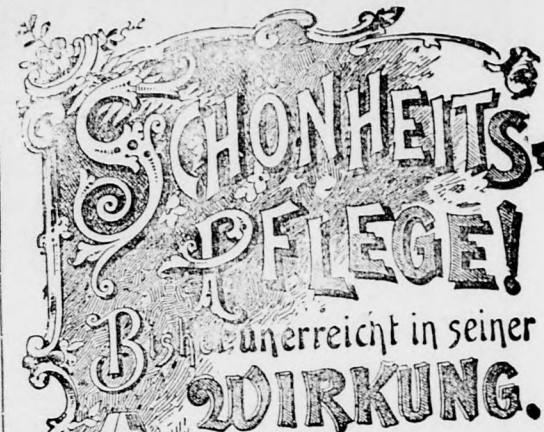 SCHÖNHEITS-
PFLEGE!
Bisher unerreicht in seiner
WIRKUNG.